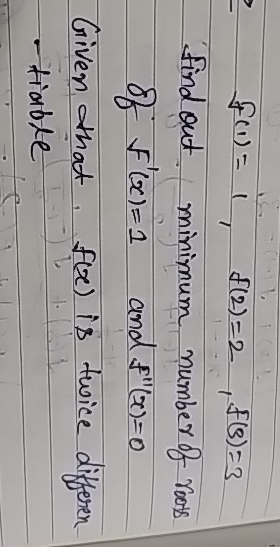 f(1) = 1, f(2)=2, f(3)=3
find out minimum number of roots
of f'(x)=1 and f''(x)=0
Given that f(x) is twice differen
-tiable